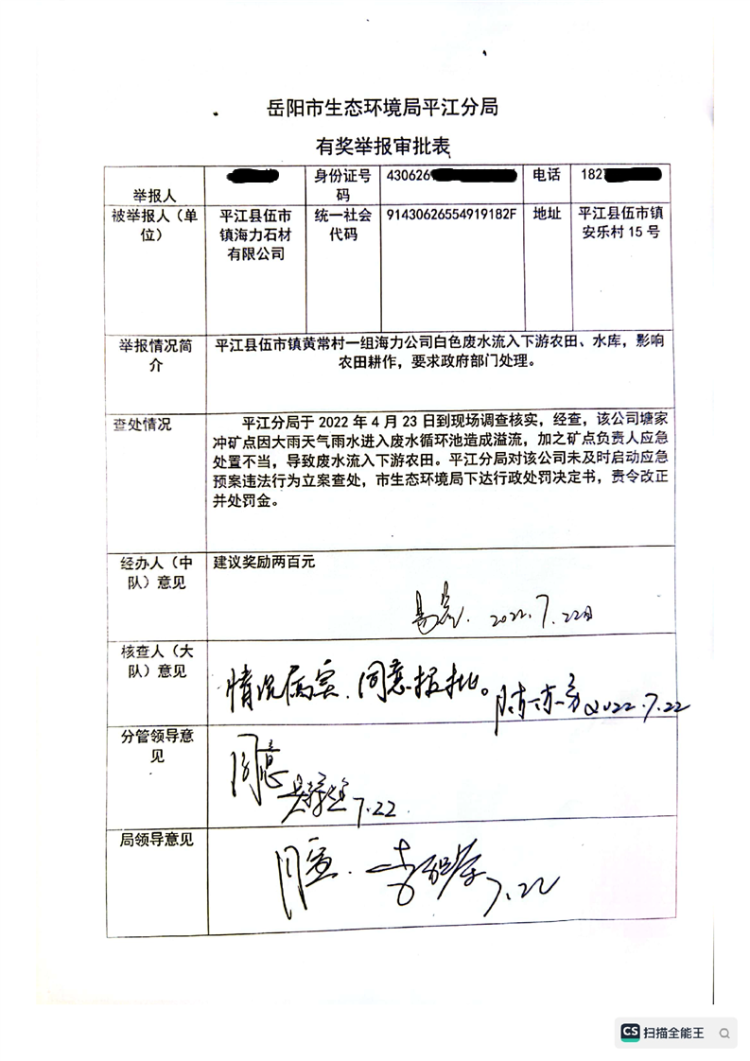 岳阳市生态环境局平江分局
有奖举报审批表
举报人
身份证号
码
430626
电话
182
被举报人（单
位）
平江县伍市
镇海力石材
有限公司
统一社会
代码
91430626554919182F
地址
平江县伍市镇
安乐村 15 号
举报情况简
介
平江县伍市镇黄常村一组海力公司白色废水流入下游农田、水库，影响
农田耕作，要求政府部门处理。
查处情况
平江分局于 2022 年 4 月 23 日到现场调查核实，经查，该公司塘家
冲矿点因大雨天气雨水进入废水循环池造成溢流，加之矿点负责人应急
处置不当，导致废水流入下游农田。平江分局对该公司未及时启动应急
预案违法行为立案查处，市生态环境局下达行政处罚决定书，责令改正
并处罚金。
经办人（中
队）意见
建议奖励两百元
2022.7.22日
核查人（大
队）意见
情况属实、同意报批。
2022.7.22
分管领导意
见
同意
7.22
局领导意见
同意.
7.22
CS 扫描全能王